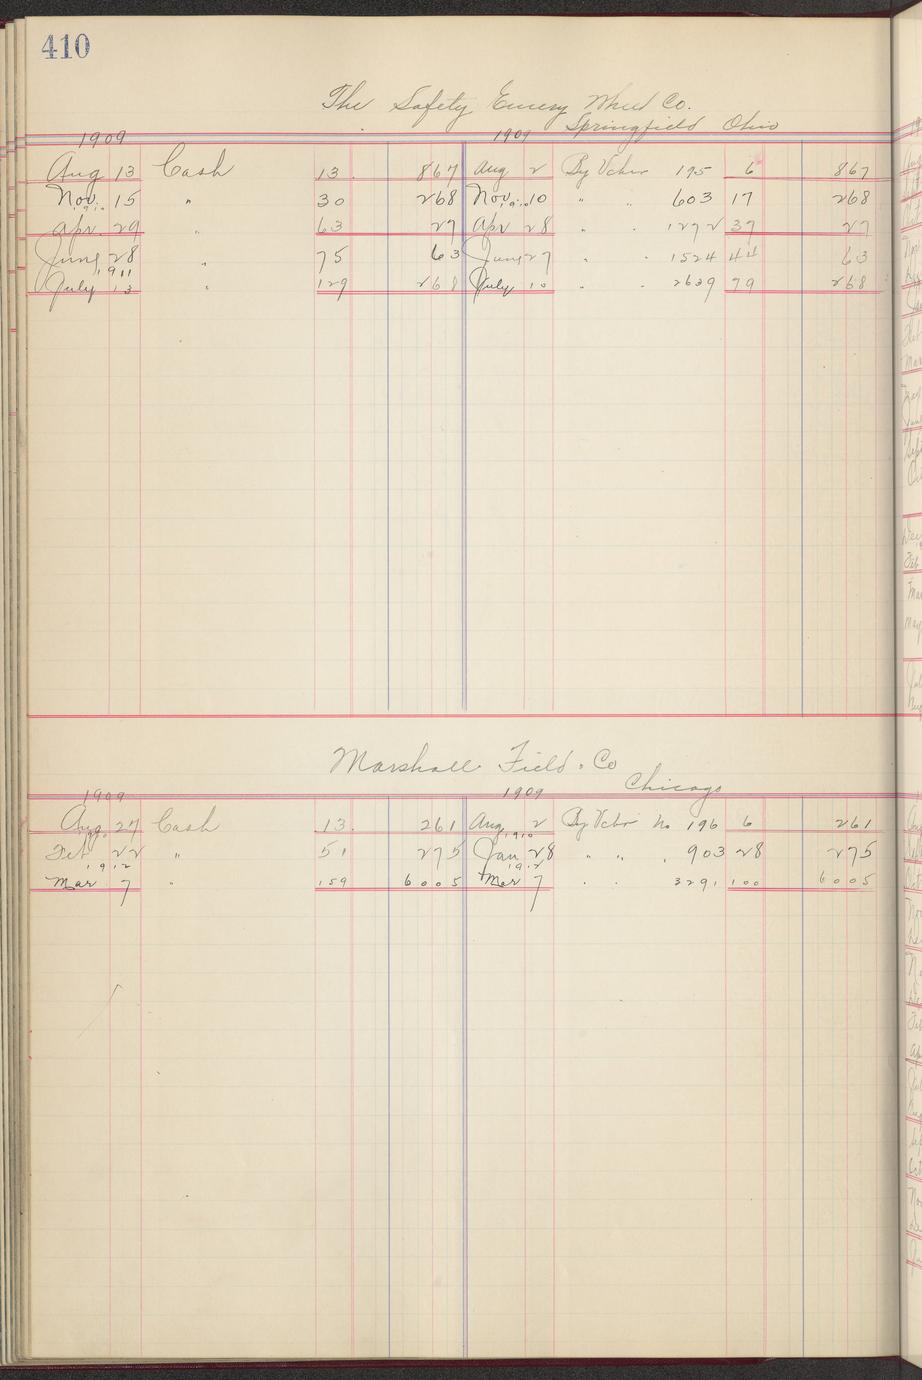 410
The Safety Emery Wheel Co.
Springfield Ohio
1909 1909
Aug 13 Cash 13 867 Aug 2 By Vcher 195 6 867
Nov. 15 " 30 268 Nov. 10 " " 603 17 268
1910 1910
Apr. 29 " 63 27 Apr 28 " " 1272 37 27
June 28 " 75 63 June 27 " " 1524 44 63
1911
July 13 " 129 268 July 10 " " 2639 79 268
Marshall Field & Co
Chicago
1909 1909
Aug. 27 Cash 13 261 Aug. 2 By Vcher No 196 6 261
1910 1910
Feb 22 " 51 275 Jan 28 " " 903 28 275
1912 1912
Mar 7 " 159 6005 Mar 7 " " 3291 100 6005